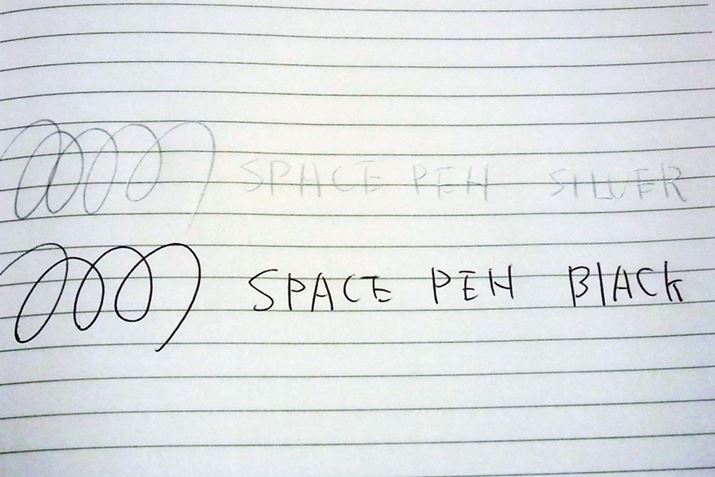 SPACE PEN SILVER
SPACE PEN BlACK